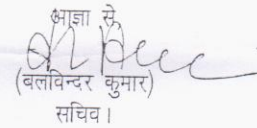 आज्ञा से
(बलविन्दर कुमार)
सचिव।